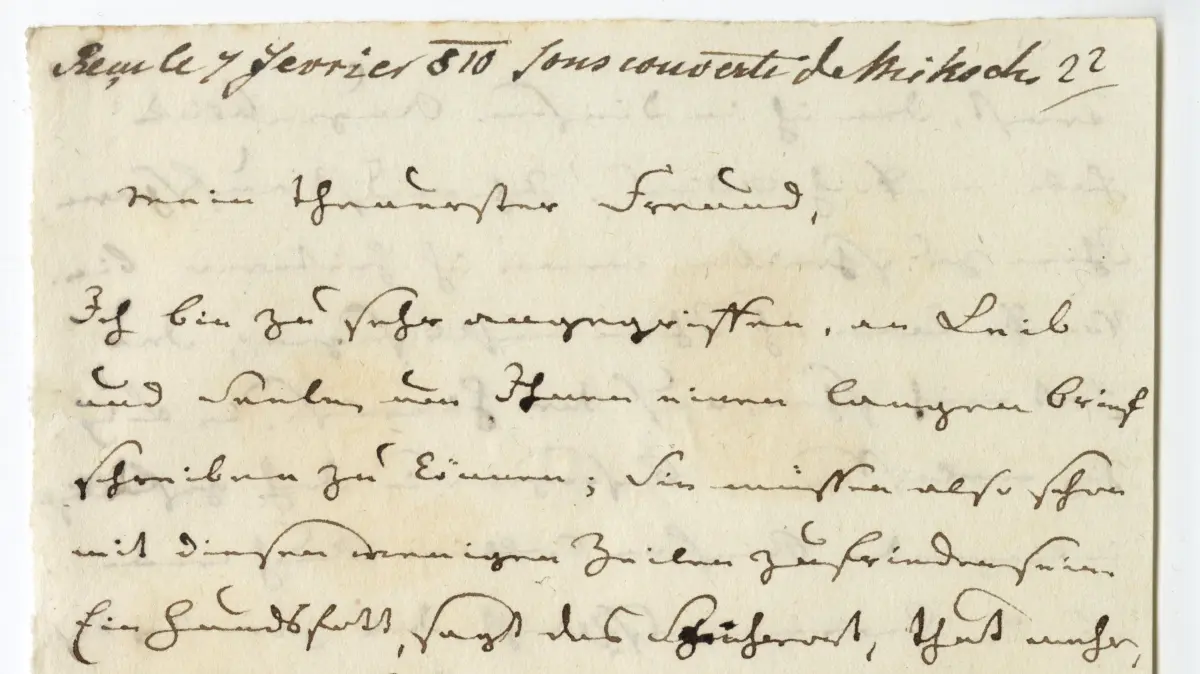 Reçu le 7 fevrier 810 sous couverte de Miksch. 22
Mein theuerster Freund,
Ich bin zu sehr angegriffen, an Leib
und Seele, um Ihnen einen langen brief
schreiben zu können; Sie müssen also schon
mit diesen wenigen Zeilen zufrieden sein.
Ein Hundsfott, sagt das Sprichwort, that mehr,